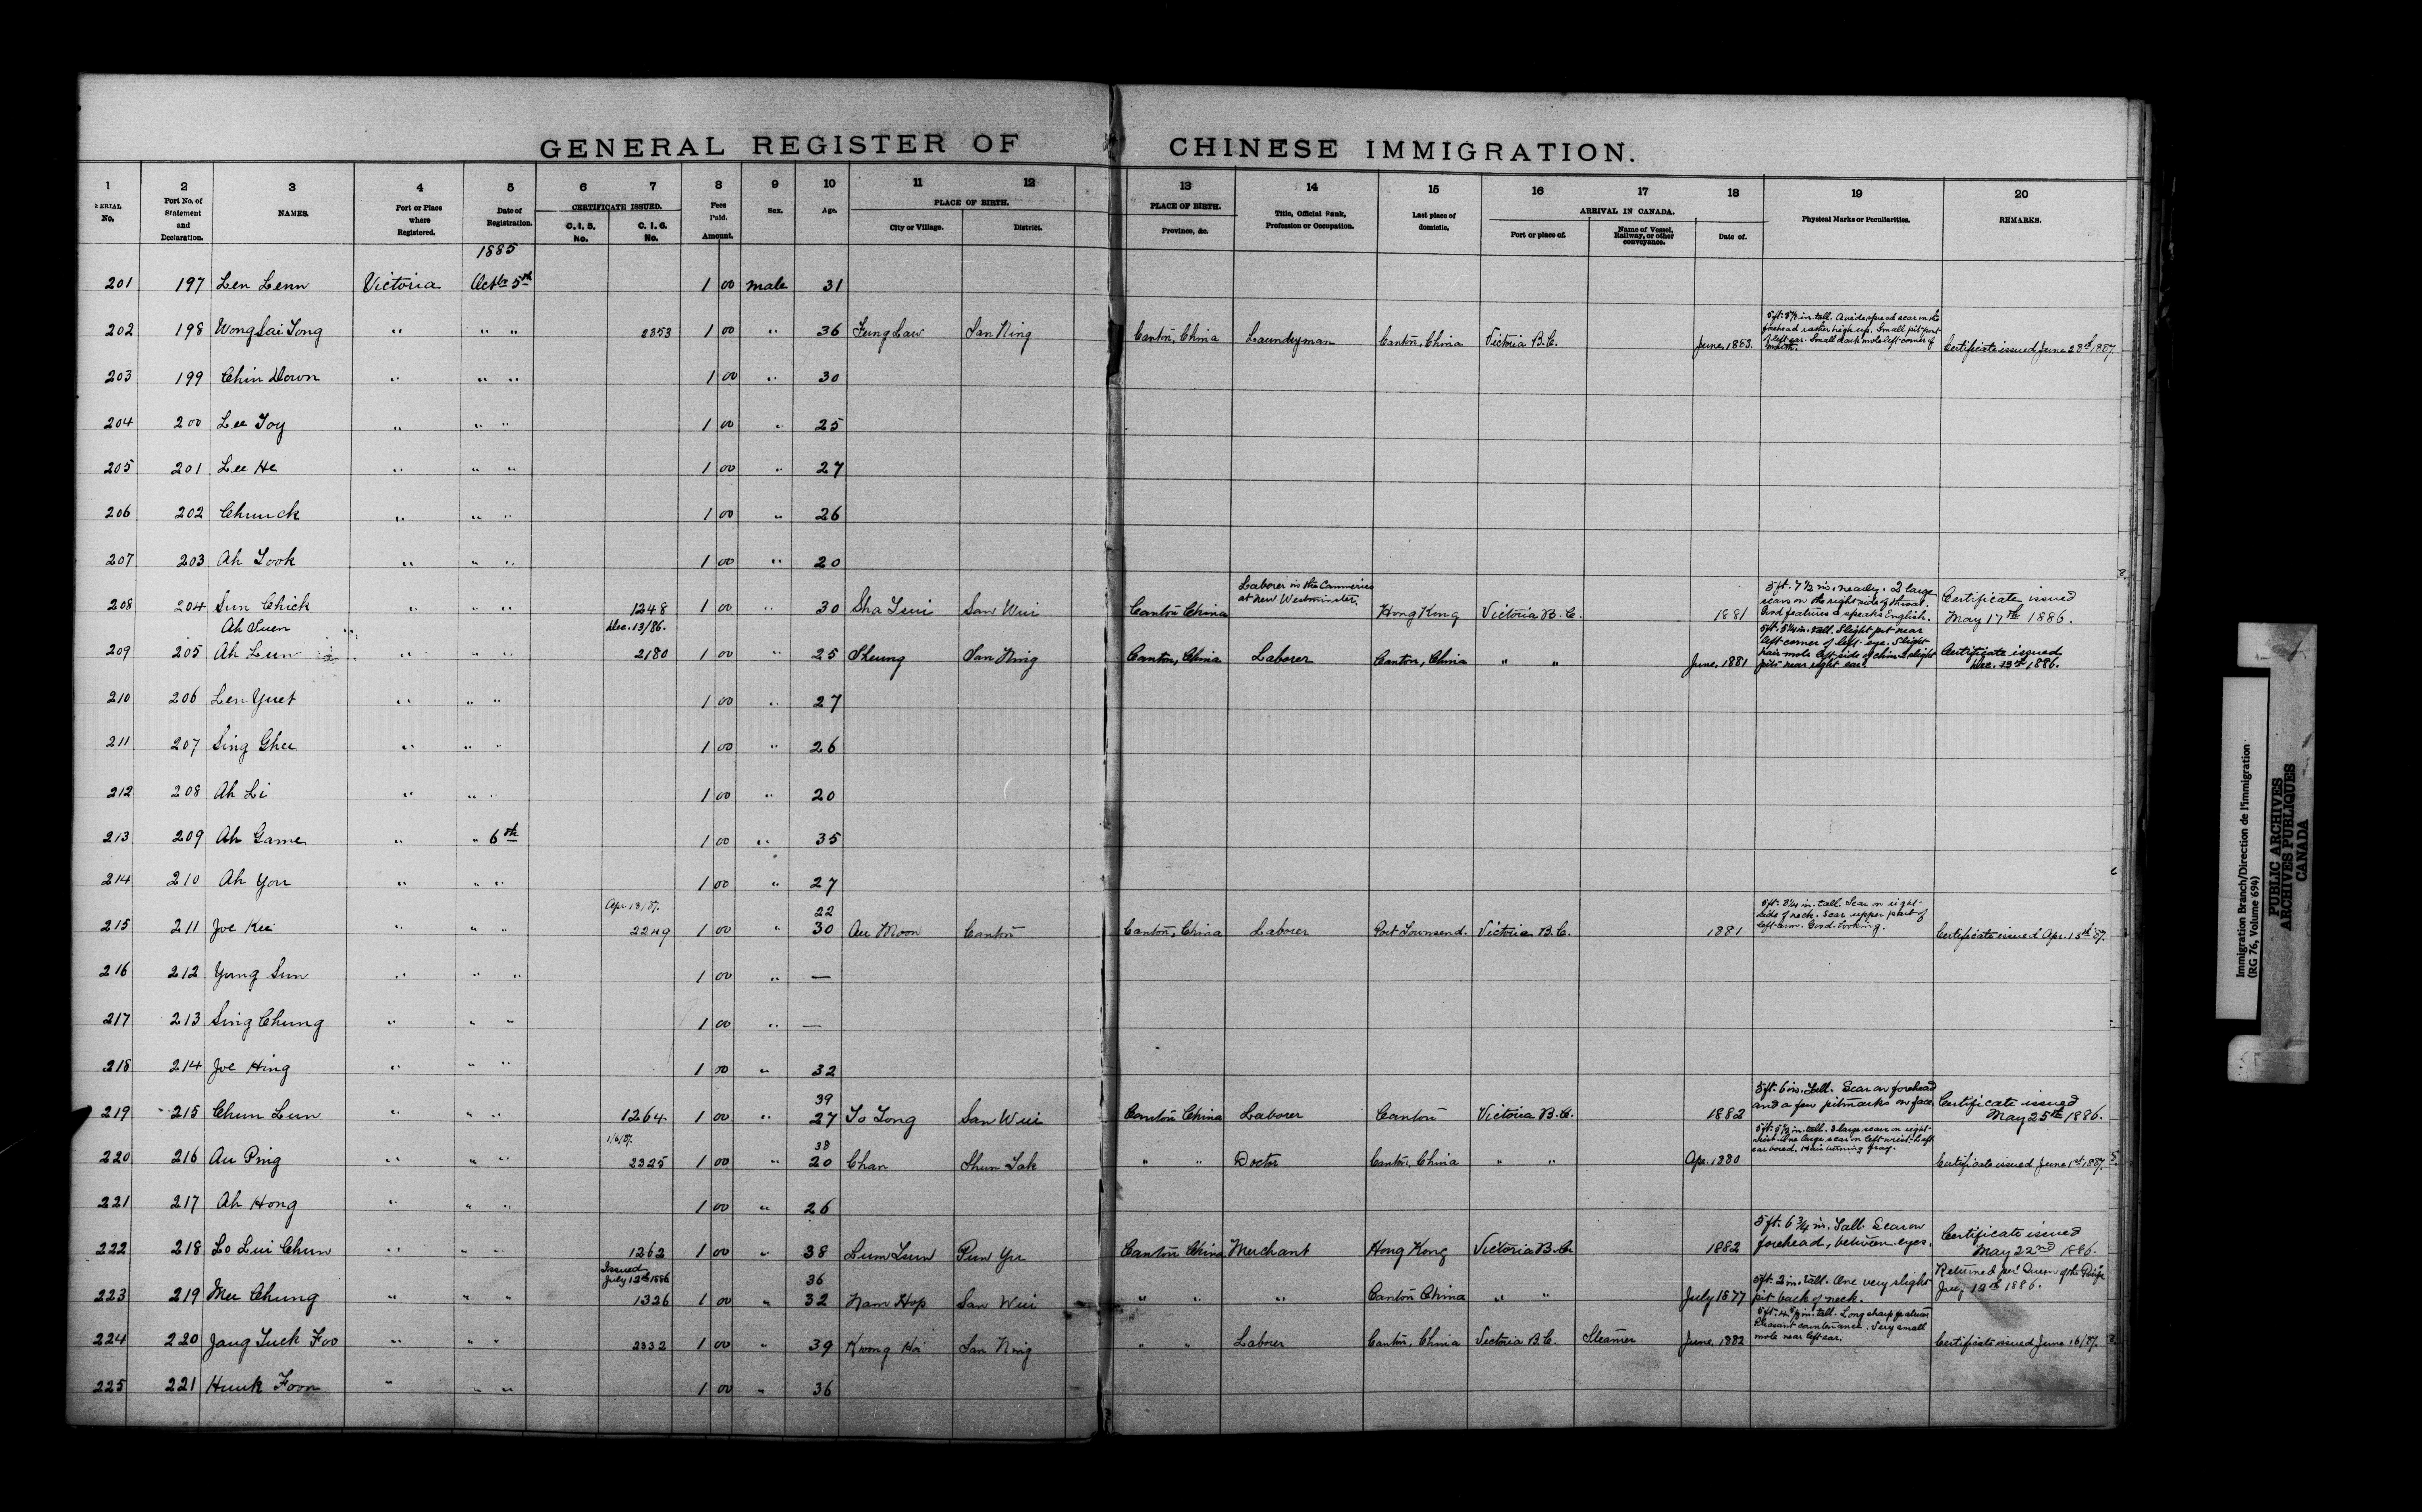 GENERAL REGISTER OF CHINESE IMMIGRATION.
1 2 3 4 5 6 7 8 9 10 11 12 13 14 15 16 17 18 19 20
SERIAL No. Port No. of Statement and Declaration. NAMES. Port or Place where Registered. Date of Registration. CERTIFICATE ISSUED. C. I. 5. No. C. I. 6. No. Fees Paid. Amount. Sex. Age. PLACE OF BIRTH. City or Village. District. PLACE OF BIRTH. Province, &c. Title, Official Rank, Profession or Occupation. Last place of domicile. ARRIVAL IN CANADA. Port or place of. Name of Vessel, Railway, or other conveyance. Date of. Physical Marks or Peculiarities. REMARKS.
1885
201 197 Len Lenn Victoria Octbr 5th 1 00 male 31
202 198 Wong Sai Tong " " " 2353 1 00 " 36 Fung Law San Ning Canton, China Laundryman Canton, China Victoria B.C. June, 1883. 5 ft. 5½ in. tall. A widespread scar on the forehead rather high up. Small pit front of left ear. Small dark mole left corner of mouth. Certificate issued June 28th 1887
203 199 Chin Down " " " 1 00 " 30
204 200 Lee Toy " " " 1 00 " 25
205 201 Lee He " " " 1 00 " 27
206 202 Chunck " " " 1 00 " 26
207 203 Ah Took " " " 1 00 " 20
208 204 Sun Chick " " " 1248 1 00 " 30 Sha Tsui San Wui Canton China Laborer in the Canneries at New Westminster. Hong Kong Victoria B.C. 1881 5 ft. 7½ in. nearly. 2 large scars on the right side of throat. Good features & speaks English. Certificate issued May 17th 1886.
Ah Suen Dec. 13/86.
209 205 Ah Lun " " " 2180 1 00 " 25 Sheung San Ning Canton, China Laborer Canton, China " " June, 1881 5 ft. 5¼ in. tall. Slight pit near left corner of left eye. Slight hair mole left side of chin. 2 slight pits near right ear. Certificate issued Dec. 13th 1886.
210 206 Len Yuet " " " 1 00 " 27
211 207 Sing Ghee " " " 1 00 " 26
212 208 Ah Li " " " 1 00 " 20
213 209 Ah Game " " 6th 1 00 " 35
214 210 Ah You " " " 1 00 " 27
Apr. 13/87. 22
215 211 Joe Kee " " " 2249 1 00 " 30 Au Moon Canton Canton, China Laborer Port Townsend. Victoria B.C. 1881 5 ft. 3¼ in. tall. Scar on right side of neck. Scar upper part of left arm. Good looking. Certificate issued Apr. 13th 87.
216 212 Yung Sun " " " 1 00 " —
217 213 Sing Chung " " " 1 00 " —
218 214 Joe Hing " " " 1 00 " 32
39
219 215 Chun Lun " " " 1264. 1 00 " 27 To Tong San Wui Canton China Laborer Canton Victoria B.C. 1882 5 ft. 6 in. Tall. Scar on forehead and a few pitmarks on face. Certificate issued May 25th 1886.
1/6/87. 38
220 216 Au Ping " " " 2325 1 00 " 20 Chan Shun Tak " " Doctor Canton, China " " Apr. 1880 5 ft. 5½ in. tall. 3 large scars on right wrist. One large scar on left wrist. Left ear bored. Hair turning gray. Certificate issued June 1st 1887.
221 217 Ah Hong " " " 1 00 " 26
222 218 Lo Lui Chun " " " 1262 1 00 " 38 Lum Tsun Pun Yu Canton China Merchant Hong Kong Victoria B.C. 1882 5 ft. 6¾ in. Tall. Scar on forehead, between eyes. Certificate issued May 22nd 1886.
Issued July 12th 1886 36
223 219 Mee Chung " " " 1326 1 00 " 32 Nam Hop San Wui " " " Canton China " " July 1877 5 ft. 2 in. tall. One very slight pit back of neck. Returned per Queen of the Pacific July 12th 1886.
224 220 Jang Tuck Foo " " " 2332 1 00 " 39 Kwong Hoi San Ning " " Laborer Canton, China Victoria B.C. Steamer June, 1882 in. tall. Long sharp features. Pleasant countenance. Very small mole near left ear. Certificate issued June 16/87.
225 221 Hunk Foon " " " 1 00 " 36
Immigration Branch/Direction de l'immigration
(RG 76, Volume 694)
PUBLIC ARCHIVES
ARCHIVES PUBLIQUES
CANADA